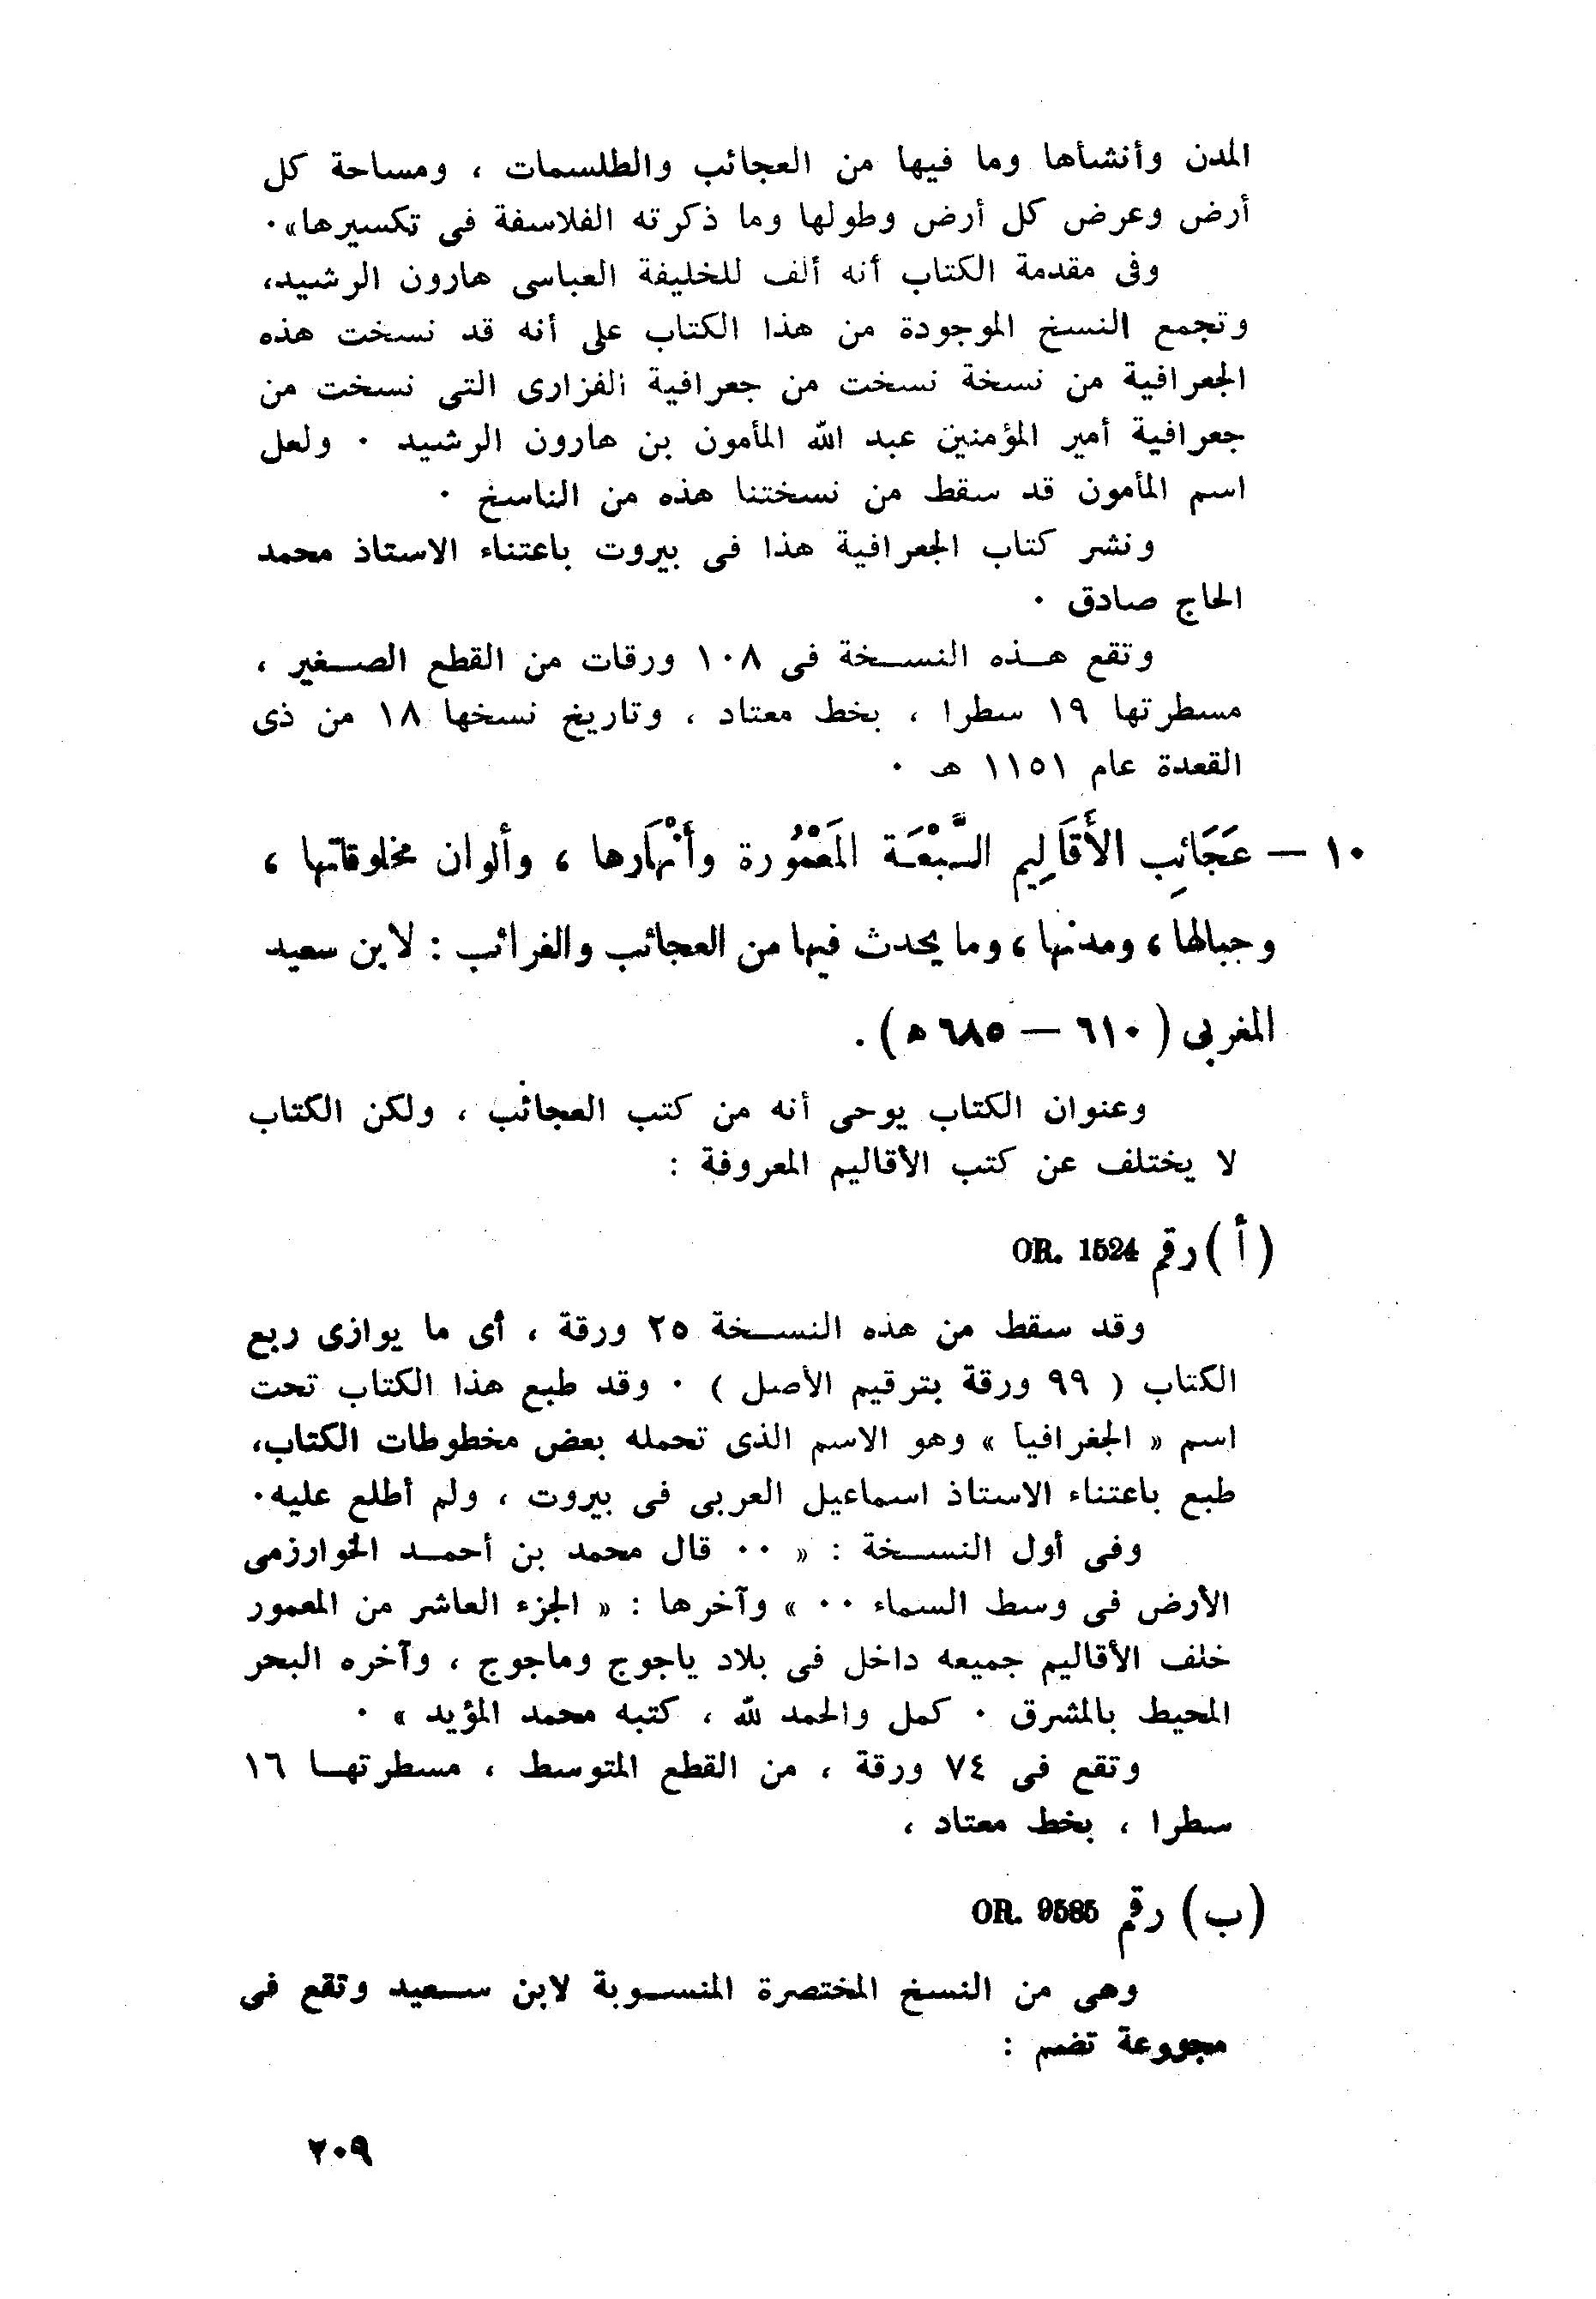 المدن وأنشأها وما فيها من العجائب والطلسمات ، ومساحة كل
أرض وعرض كل أرض وطولها وما ذكرته الفلاسفة فى تكسيرها» ٠
وفى مقدمة الكتاب أنه ألف للخليفة العباسى هارون الرشيد،
وتجمع النسخ الموجودة من هذا الكتاب على أنه قد نسخت هذه
الجعرافية من نسخة نسخت من جعرافية الفزارى التى نسخت من
جعرافية أمير المؤمنين عبد الله المأمون بن هارون الرشيد ٠ ولعل
اسم المأمون قد سقط من نسختنا هذه من الناسخ ٠
ونشر كتاب الجعرافية هذا فى بيروت باعتناء الاستاذ محمد
الحاج صادق ٠
وتقع هـذه النسـخة فى ١٠٨ ورقات من القطع الصـغير ،
مسطرتها ١٩ سطرا ، بخط معتاد ، وتاريخ نسخها ١٨ من ذى
القعدة عام ١١٥١ هـ ٠
١٠ — عَجَائِب الأَقَالِيم السَّبْعَة المَعْمُورة وأَنْهَارها ، وألوان مخلوقاتها ،
وجبالها ، ومدنها ، وما يحدث فيها من العجائب والغرائب : لابن سعيد
المغربى ( ٦١٠ — ٦٨٥ ه ) .
وعنوان الكتاب يوحى أنه من كتب العجائب ، ولكن الكتاب
لا يختلف عن كتب الأقاليم المعروفة :
( أ ) رقم OR. 1524
وقد سقط من هذه النسـخة ٢٥ ورقة ، أى ما يوازى ربع
الكتاب ( ٩٩ ورقة بترقيم الأصل ) ٠ وقد طبع هذا الكتاب تحت
اسم « الجغرافيا » وهو الاسم الذى تحمله بعض مخطوطات الكتاب،
طبع باعتناء الاستاذ اسماعيل العربى فى بيروت ، ولم أطلع عليه ٠
وفى أول النسـخة : « ٠٠ قال محمد بن أحمـد الخوارزمى
الأرض فى وسط السماء ٠٠ » وآخرها : « الجزء العاشر من المعمور
خلف الأقاليم جميعه داخل فى بلاد ياجوج وماجوج ، وآخره البحر
المحيط بالمشرق ٠ كمل والحمد لله ، كتبه محمد المؤيد » ٠
وتقع فى ٧٤ ورقة ، من القطع المتوسط ، مسطرتهـا ١٦
سطرا ، بخط معتاد ،
(ب) رقم OR. 9585
وهى من النسخ المختصرة المنسـوبة لابن سـعيد وتقع فى
مجموعة تضم :
٢٠٩